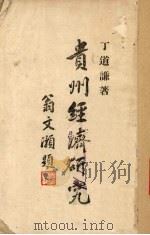 丁道謙著
貴州經濟研究
翁文灝題